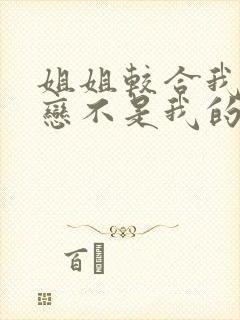 姐姐較合我
戀不是我的
百